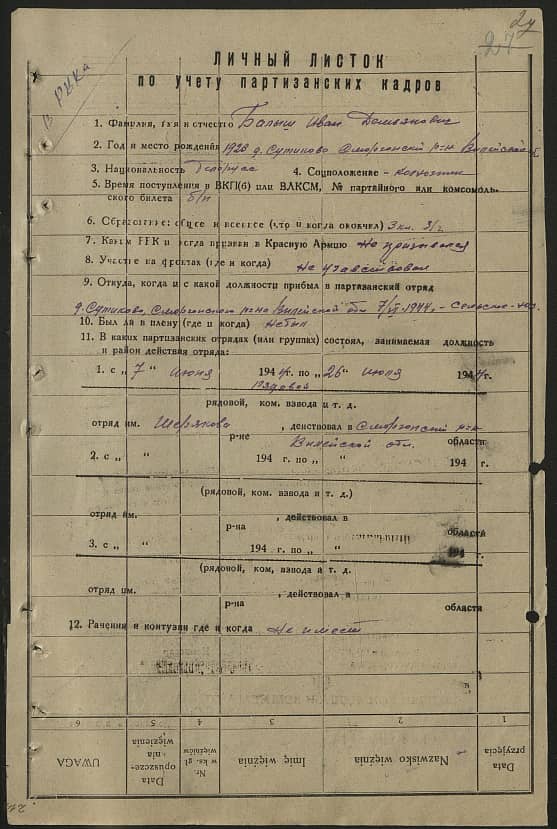 27
В РУКК
ЛИЧНЫЙ ЛИСТОК
по учету партизанских кадров
1. Фамилия, имя и отчество Балыш Иван Демьянович
2. Год и место рождения 1928 д. Сутиково Сморгонский р-н Вилейской об
3. Национальность Белорус 4. Соцположение - колхозник
5. Время поступления в ВКП(б) или ВЛКСМ, № партийного или комсомоль-
ского билета б/п
6. Образование: общее и военное (что и когда окончил) 3 кл.
7. Каким РВК и когда призван в Красную Армию Не призывался
8. Участие на фронтах (где и когда) Не участвовал
9. Откуда, когда и с какой должности прибыл в партизанский отряд
д. Сутиково, Сморгонского р-на Вилейской обл 7/VI-1944 г. - Сельское-хоз.
10. Был ли в плену (где и когда) Не был
11. В каких партизанских отрядах (или группах) состоял, занимаемая должность
и район действия отряда:
1. с „ 7 " июня 1944 г. по „ 26 " июля 1944 г.
рядовой
рядовой, ком. взвода и т. д.
отряд им. , действовал в Сморгонский р-н
р-не Вилейской обл. области
2. с „ " 194 г. по „ " 194 г.
(рядовой, ком. взвода и т. д.)
отряд им. , действовал в
р-на области
3. с „ " 194 г. по „ " 194 г.
(рядовой, ком, взвода и т. д.
отряд им. , действовал в
р-на области
12. Ранения и контузии где и когда Не имеет
6 5 4 3 2 1
UWAGA
Data opuszcze-nia więzienia
Nr. w ks. gł. więźniów
Imię więźnia
Nazwisko więźnia
Data przyjęcia